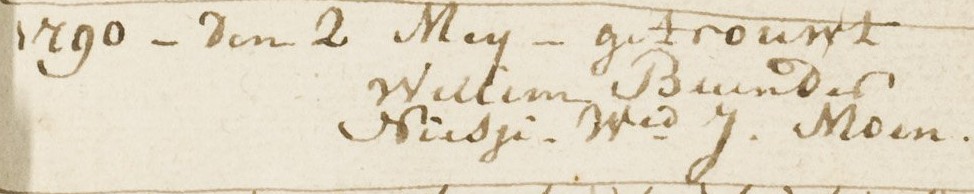 1790 - Den 2 Mey - getrouwt
Willem Beunder
Niesje. Wed J. Moen.